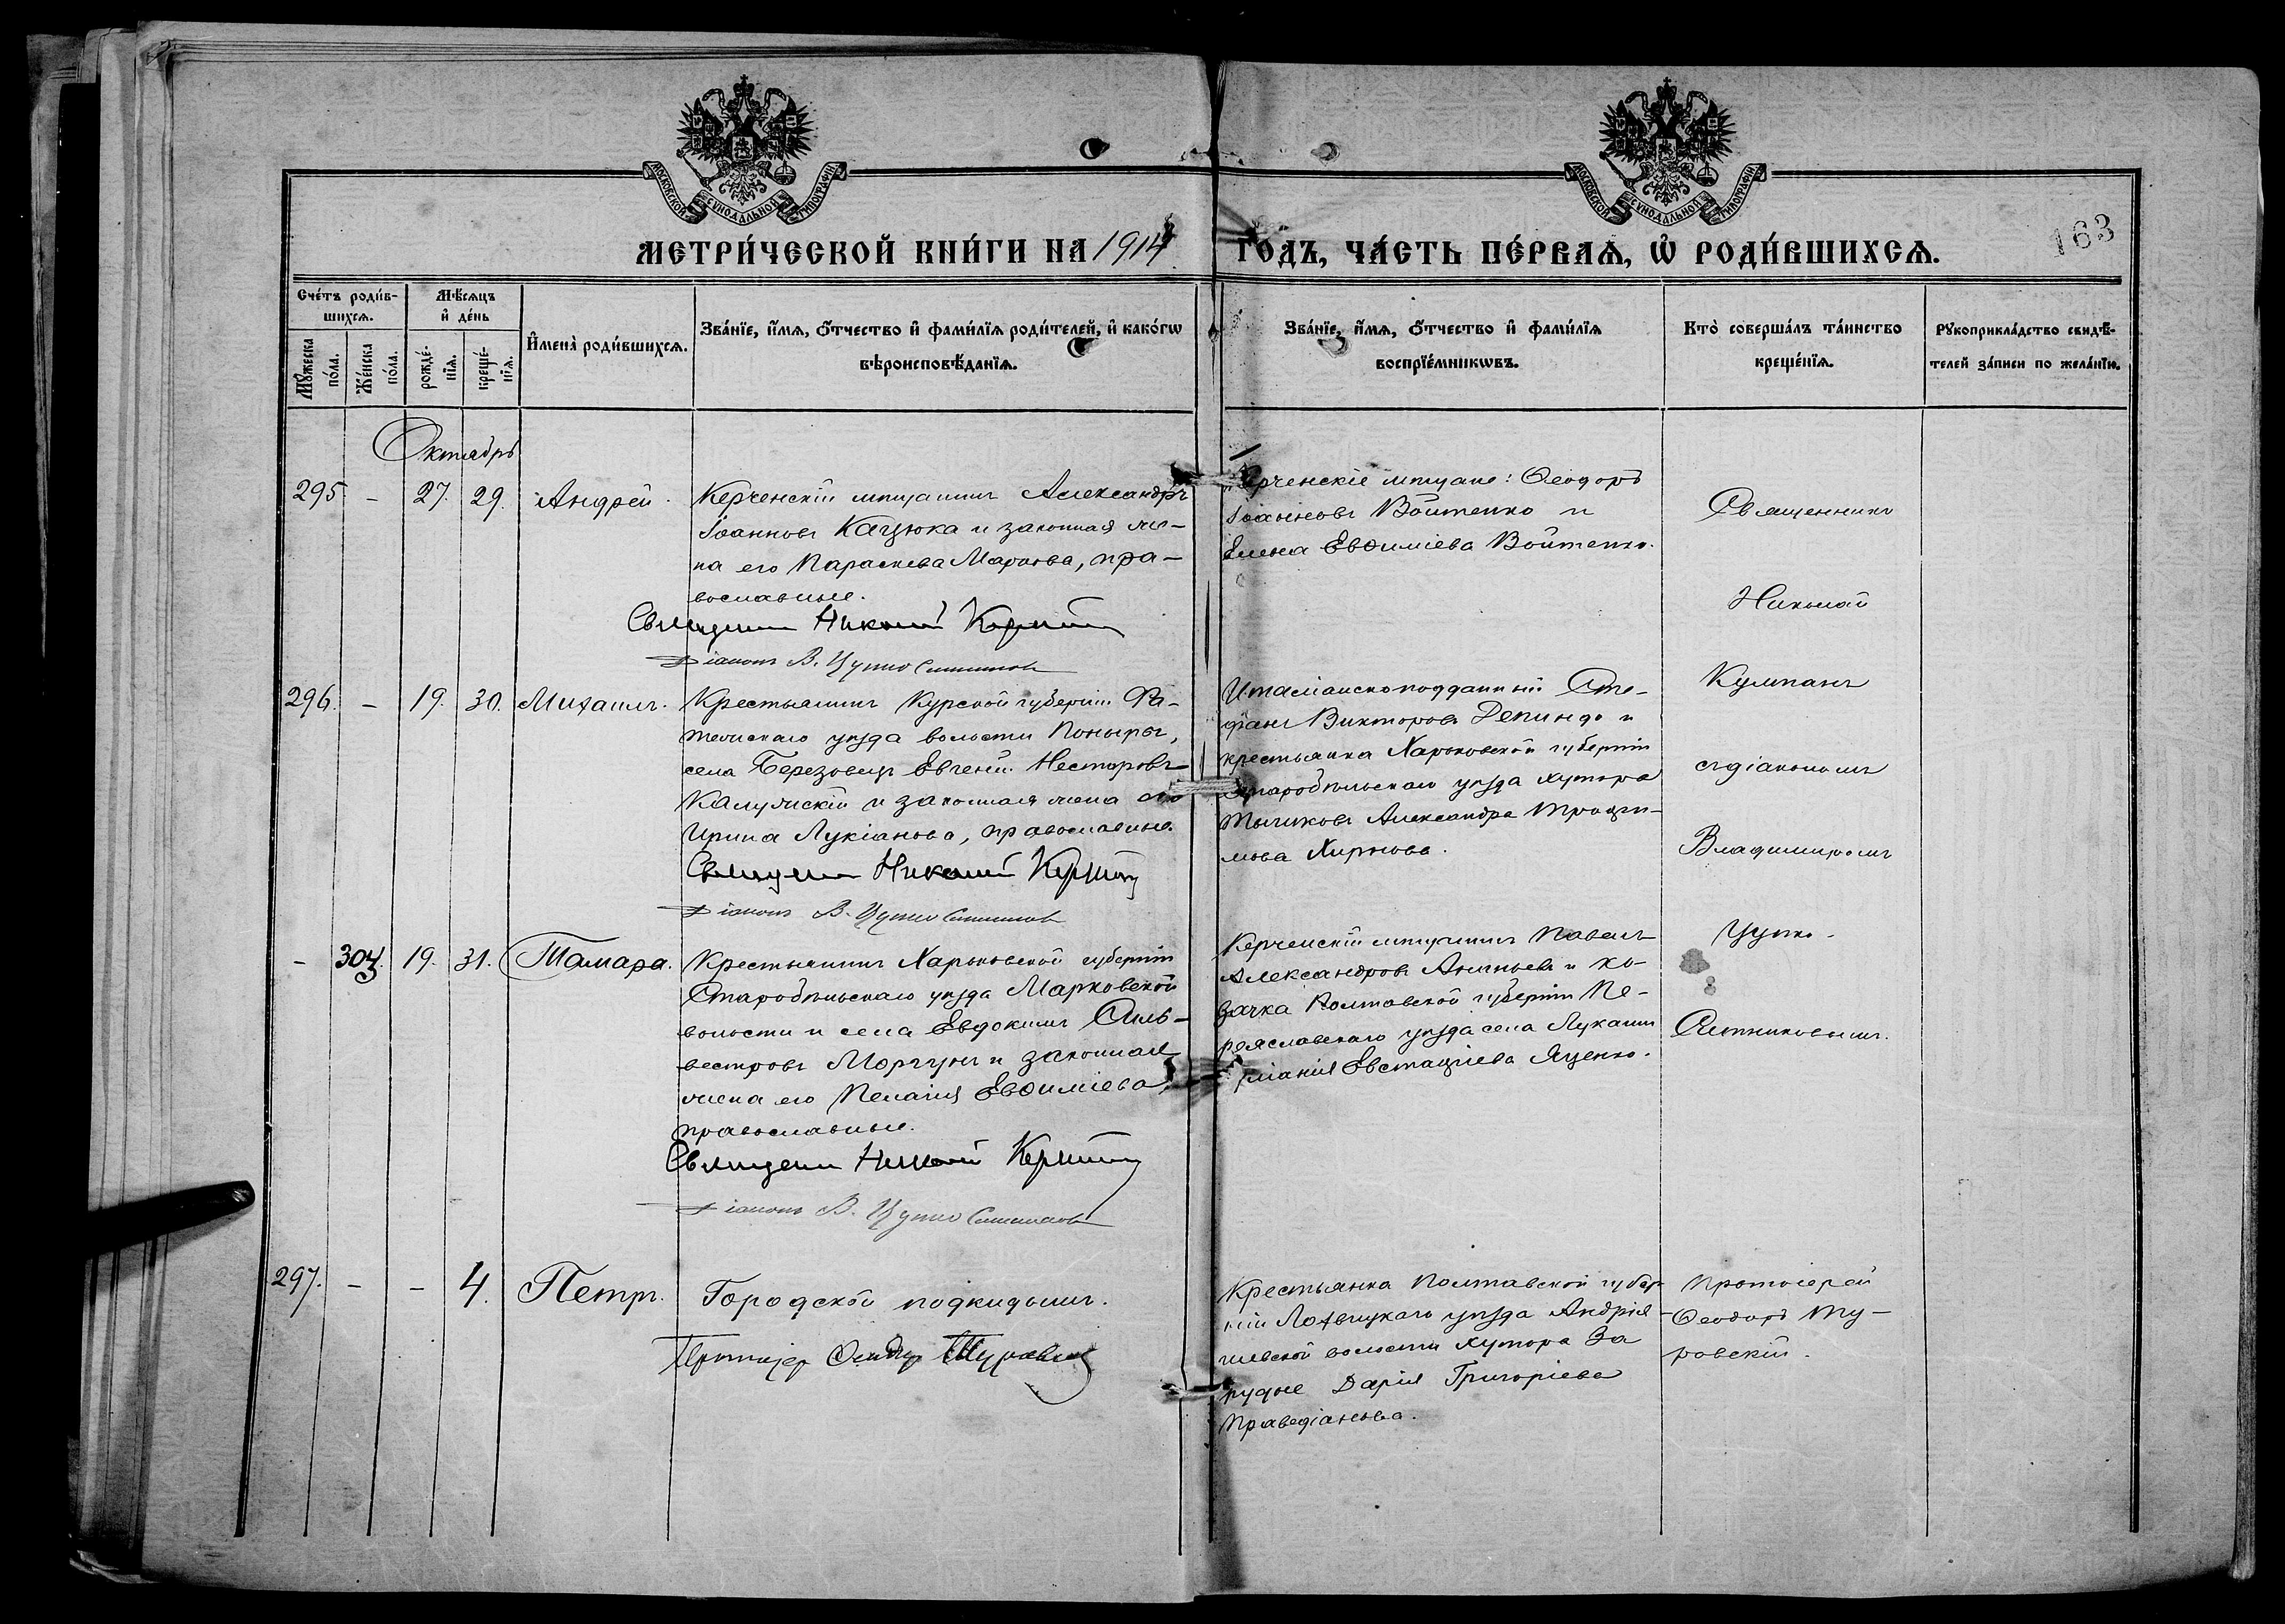 МОСКОВСКОЙ СУНОДАЛЬНОЙ ТИПОГРАФІИ
МОСКОВСКОЙ СУНОДАЛЬНОЙ ТИПОГРАФІИ
МЕТРИ́ЧЕСКОЙ КНИ́ГИ НА 1914 ГОДЪ, ЧА́СТЬ ПЕ́РВАѦ, Ѡ РОДИ́ВШИХСѦ.
163
Сче́тъ роди́в-
шихсѧ.
Мꙋ́жеска
по́ла.
Же́нска
по́ла.
Мѣ́сѧцъ
и де́нь
рожде́-
нїѧ.
креще́-
нїѧ.
Имена̀ роди́вшихсѧ.
Зва́нїе, и́мѧ, о́тчество и фами́лїѧ роди́телей, и како́гѡ
вѣроисповѣ́данїѧ.
Зва́нїе, и́мѧ, о́тчество и фами́лїѧ
воспрїе́мникѡвъ.
Кто̀ соверша́лъ та́инство
креще́нїѧ.
Рꙋкоприкла́дство свидѣ́-
телей за́писи по жела́нїю.
Октябрь
295. - 27. 29. Андрей.
Керченскій мѣщанинъ Александръ
Іоанновъ Кацюка и законная же-
на его Параскева Маркова, пра-
вославные.
Священникъ Николай
Діаконъ В. Цупко
Керченскіе мѣщане: Ѳеодоръ
Іоанновъ Войтенко и
Елена Евѳиміева Войтенко.
Священникъ
Николай
Кумпанъ
съ діакономъ
Владимиромъ
Цупко-
Ситниковымъ.
296. - 19. 30. Михаилъ.
Крестьянинъ Курской губерніи Фа-
тежскаго уѣзда волости Поныры,
села Березовецъ Евгеній Несторовъ
Калужскій и законная жена его
Ирина Лукіанова, православные.
Священникъ Николай
Діаконъ В. Цупко
Италіанскоподданный Сте-
фанъ Викторовъ Депиндо и
крестьянка Харьковской губерніи
Старобѣльскаго уѣзда хутора
Александра Трофи-
мова
- 304. 19. 31. Тамара.
Крестьянинъ Харьковской губерніи
Старобѣльскаго уѣзда Марковской
волости и села Евдокимъ Силь-
вестровъ Моргунъ и законная
жена его Пелагія Евѳиміева,
православные.
Священникъ Николай
Діаконъ В. Цупко
Керченскій мѣщанинъ Павелъ
Александровъ Ананьевъ и ка-
зачка Полтавской губерніи Пе-
реяславскаго уѣзда села
Евстафіева Яценко.
297. - - 4. Петръ.
Городской подкидышъ.
Протоіерей Ѳеодоръ Туровскій
Крестьянка Полтавской губер-
ніи Лохвицкаго уѣзда Андрія-
шевской волости хутора За
рудное Дарія Григоріева
Праведіанова.
Протоіерей
Ѳеодоръ Ту-
ровскій.